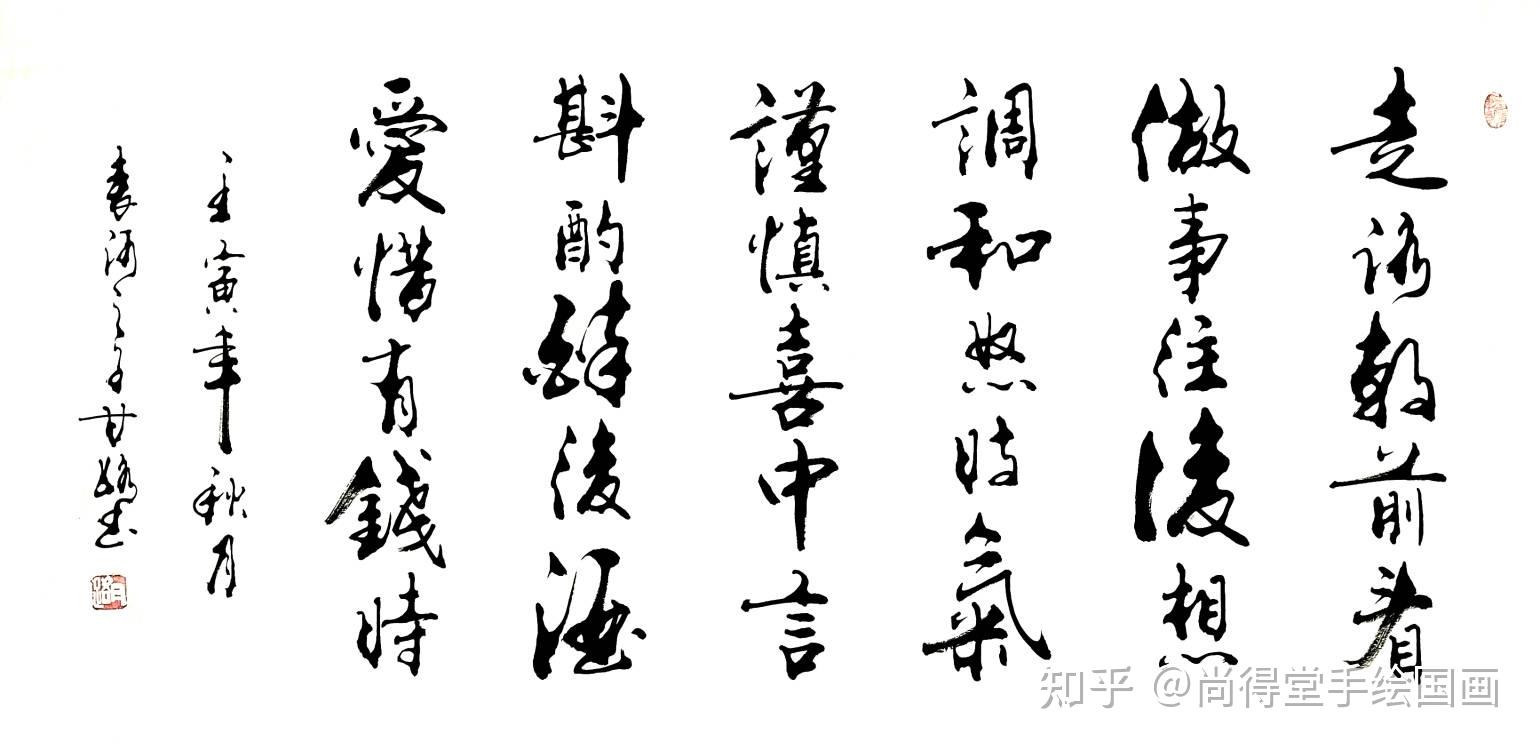 走路朝前看
做事往後想
調和怒時氣
謹慎喜中言
斟酌醉後酒
愛惜有錢時
壬寅年秋月
河之子甘路书
知乎 @尚得堂手绘国画